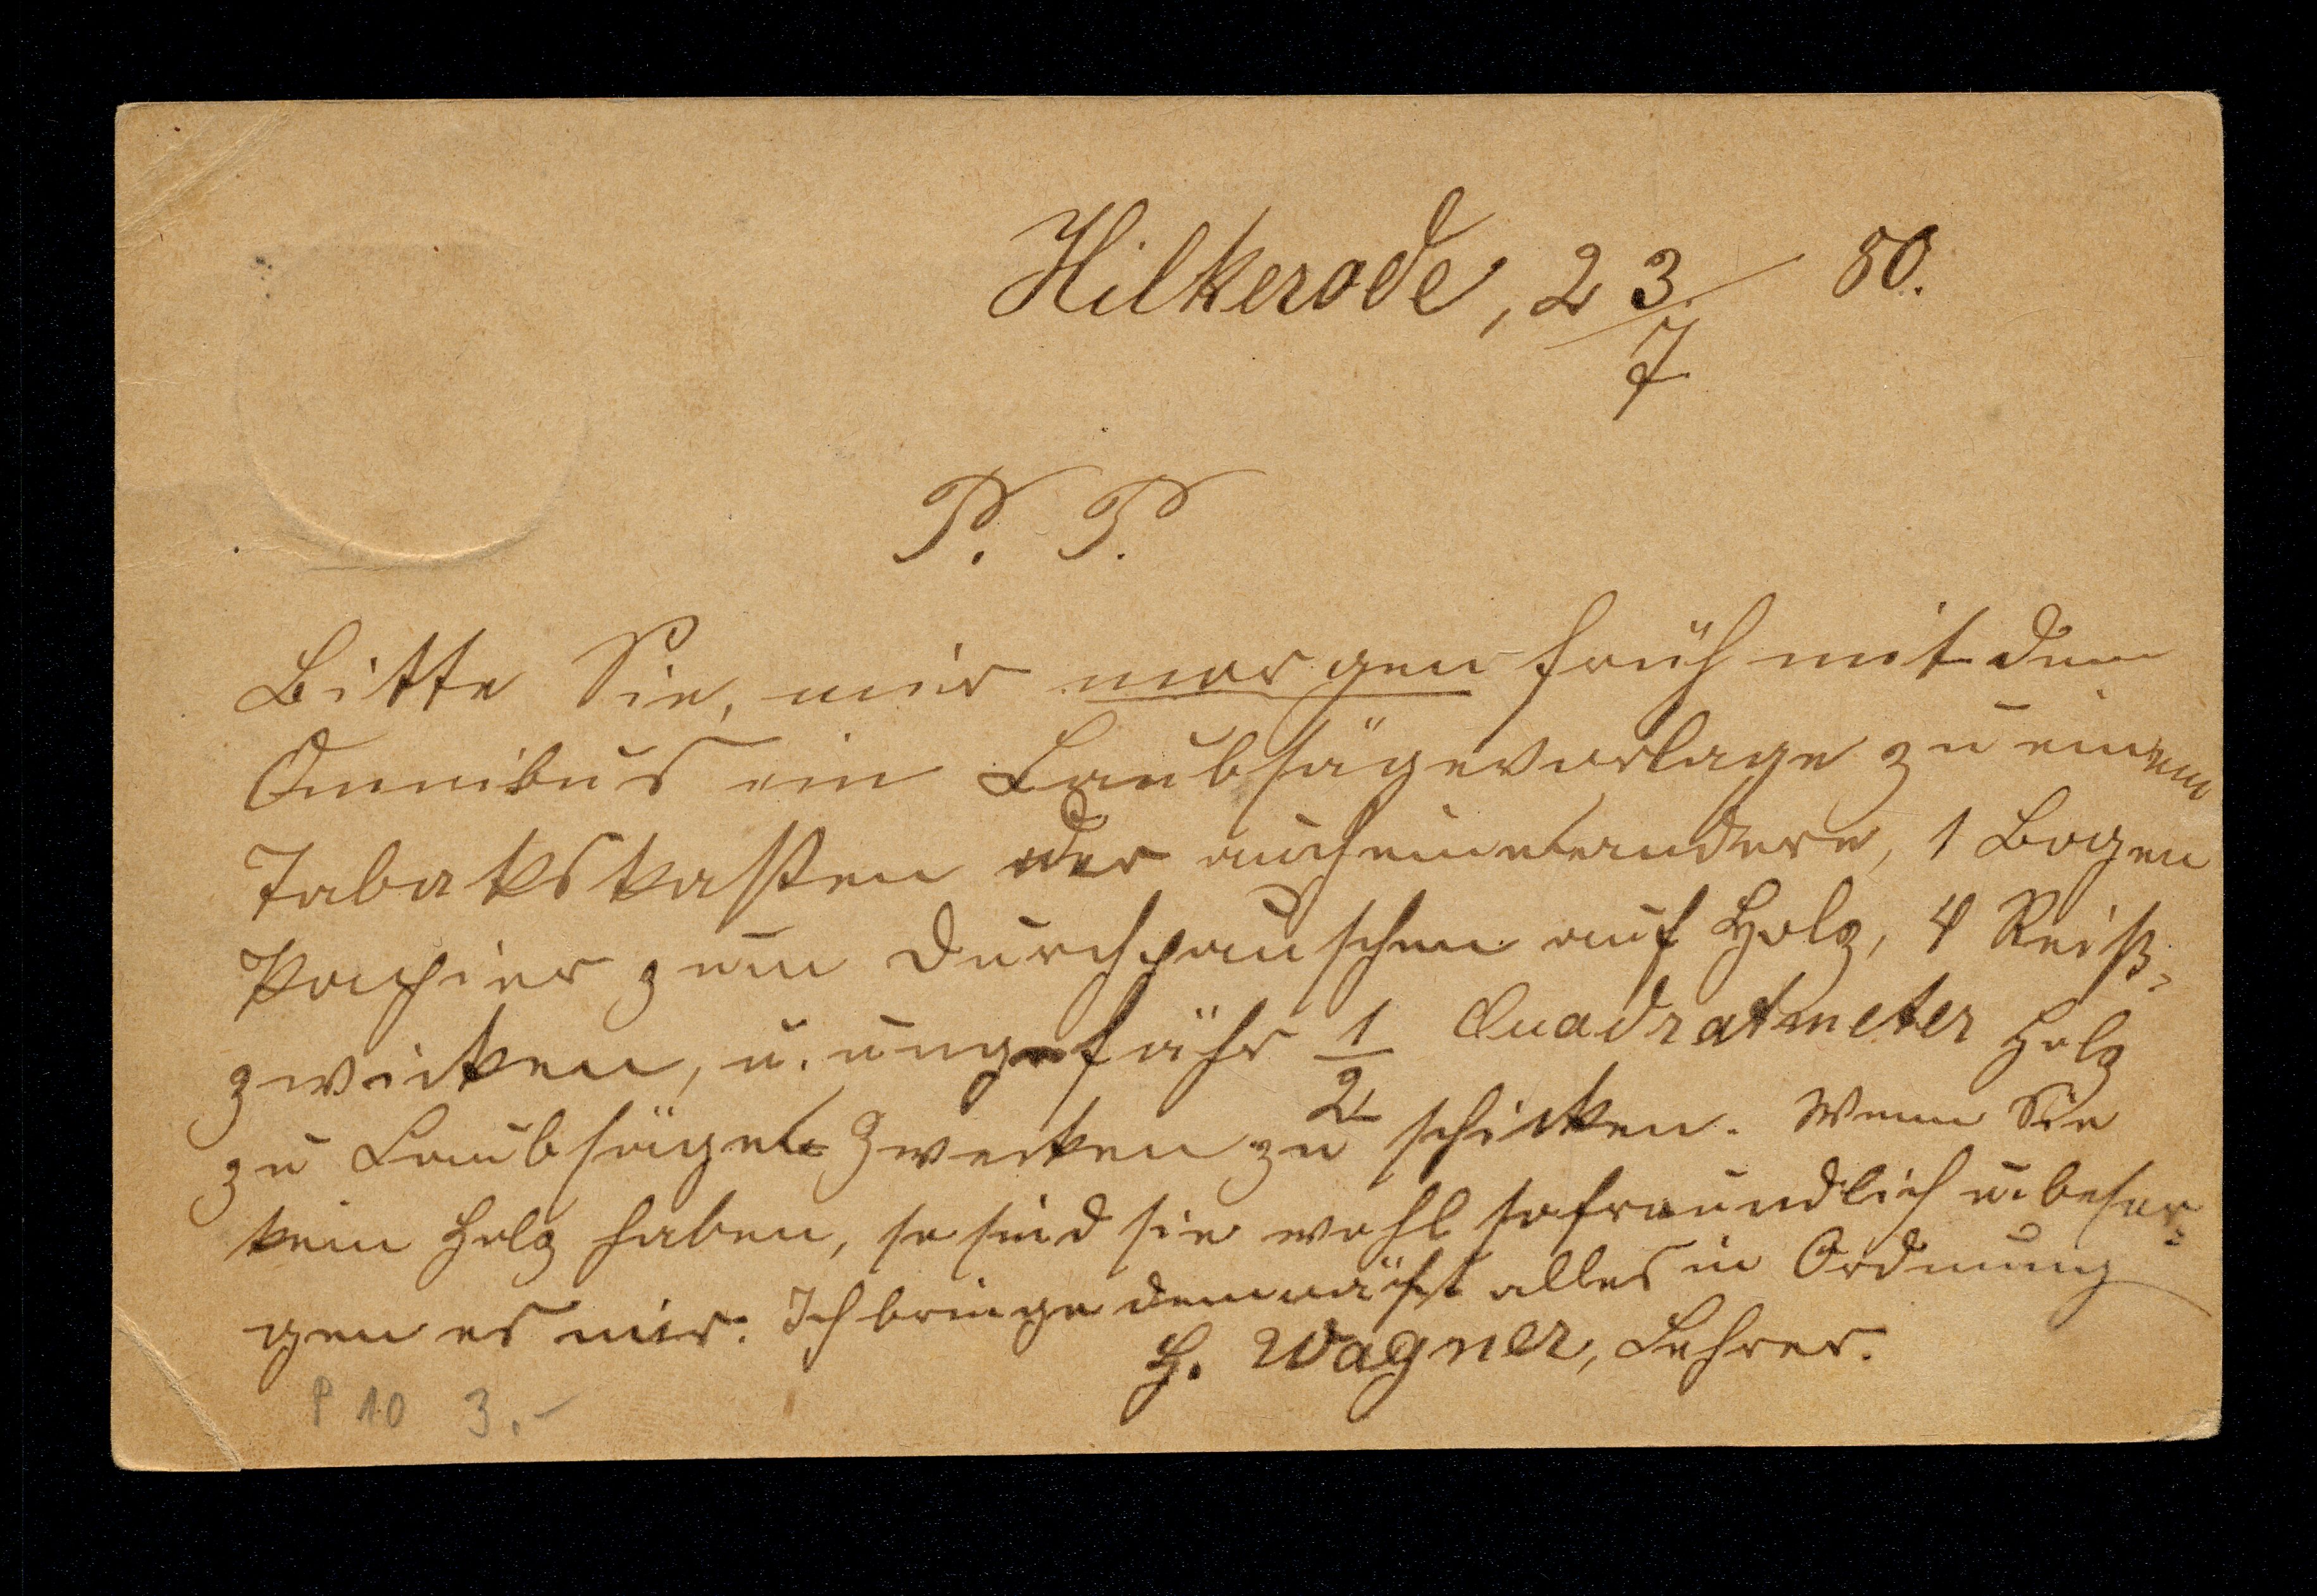 Hilkerode, 23/7 80.
P. P.
Bitte Sie, mir morgen früh mit dem
Omnibus ein Laubsägevorlage zu einem
Tabakskasten oder auch eine andere, 1 Bogen
Papier zum Durchpauschen auf Holz, 4 Reiß-
zwicken, u. ungefähr 1/2 Quadratmeter Holz
zu Laubsäge-Zwecken zu schicken. Wenn Sie
kein Holz haben, so sind sie wohl so freundlich u. besor-
gen es mir. Ich bringe demnächst alles in Ordnung
H. Wagner, Lehrer.
P 10 3.-